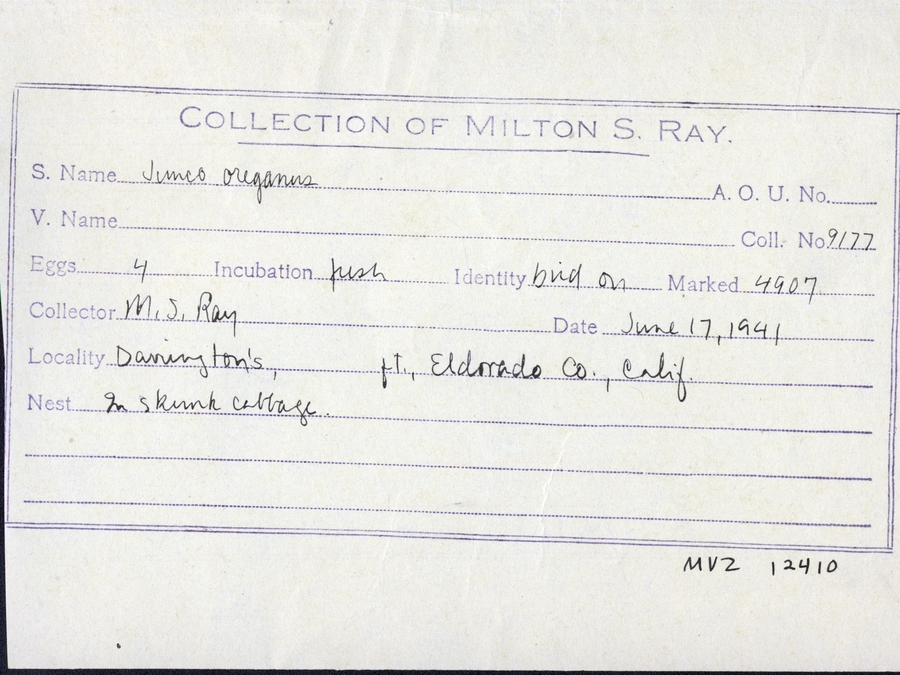 COLLECTION OF MILTON S. RAY.
S. Name Junco oreganus A. O. U. No.
V. Name Coll. No 9177
Eggs 4 Incubation fresh Identity bird on Marked 4907
Collector M. S. Ray Date June 17, 1941
Locality Darrington's, ft., Eldorado Co., Calif.
Nest In skunk cabbage.
MVZ 12410